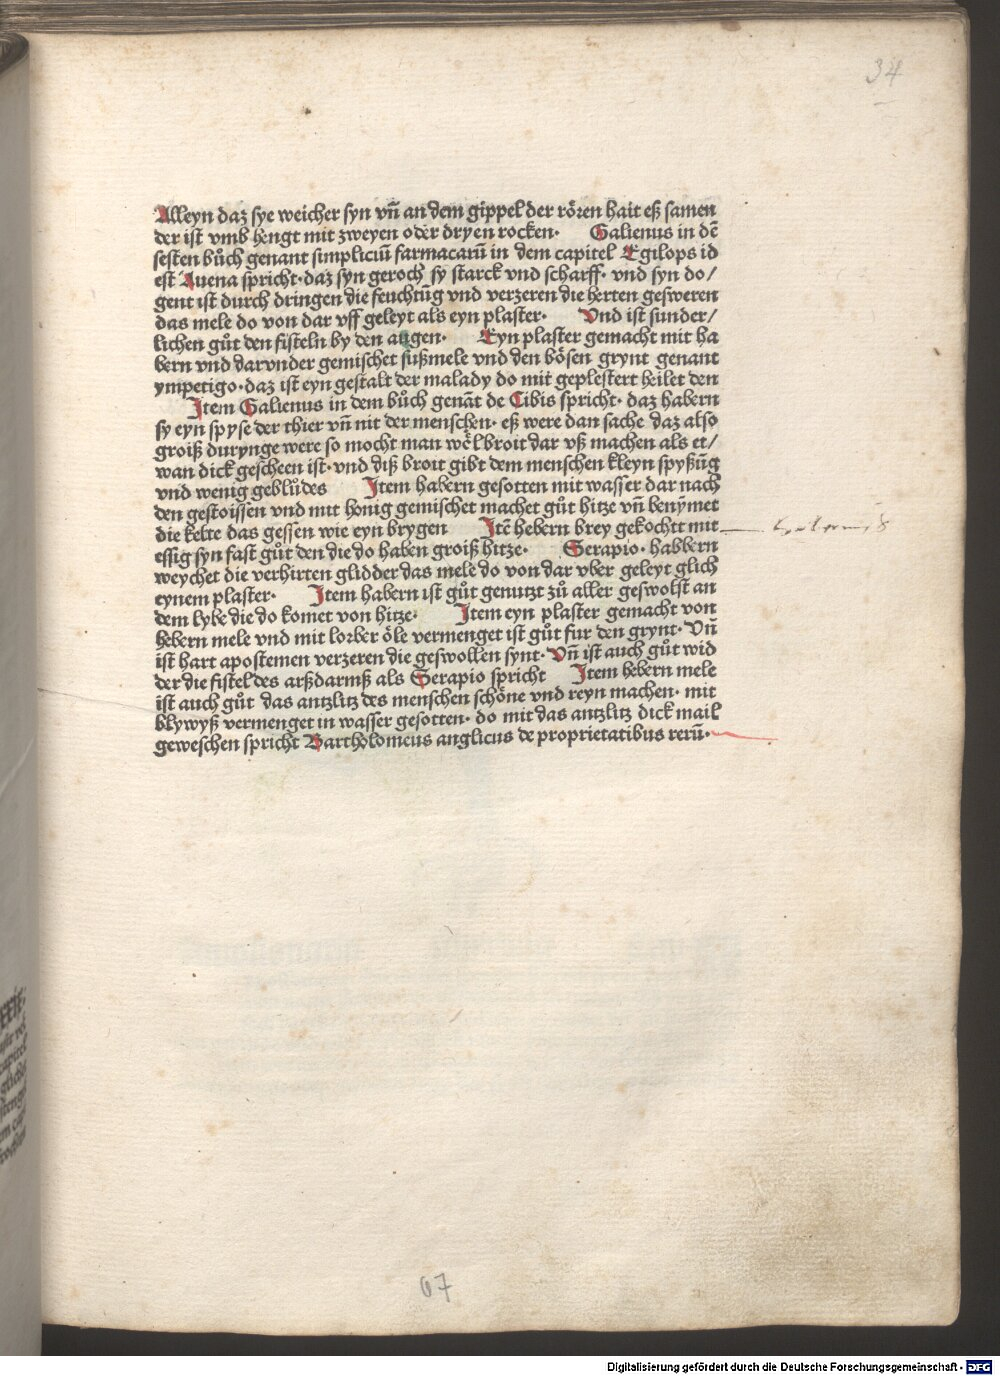 34
Alleyn daz sye weicher syn vn̄ an dem gippel der rören hait eß samen
der ist vmb hengt mit zweyen oder dryen rocken· Galienus in dē
sesten bůch genant simpliciū farmacarū in dem capitel Egilops id
est Auena spricht·daz syn geroch sy starck vnd scharff· vnd syn do/
gent ist durch dringen die feuchtūg vnd verzeren die herten gesweren
das mele do von dar vff geleyt als eyn plaster· Vnd ist sunder/
lichen gůt den fisteln by den augen· Eyn plaster gemacht mit ha
bern vnd darvnder gemischet fußmele vnd den bösen grynt genant
ympetigo·daz ist eyn gestalt der malady do mit geplestert heilet den
Item Galienus in dem bůch genāt de Cibis spricht· daz habern
sy eyn spyse der thier vn̄ nit der menschen· eß were dan sache daz also
groiß durynge were so mocht man wēlbroit dar vß machen als et/
wan dick gescheen ist·vnd diß broit gibt dem menschen kleyn spyßūg
vnd wenig geblůdes Item habern gesotten mit wasser dar nach
den gestoissen vnd mit honig gemischet machet gůt hitze vn̄ benȳmet
die kelte das gessen wie eyn brygen Itē hebern brey gekochtt mit
essig syn fast gůt den die do haben groiß hitze· Serapio· habbern
weychet die verhirten glidder das mele do von dar vber geleyt glich
eynem plaster· Item habern ist gůt genutzt zů aller geswolst an
dem lybe die do komet von hitze· Item eyn plaster gemacht von
hebern mele vnd mit lorber öle vermenget ist gůt fur den grynt· Vn̄
ist hart apostemen verzeren die geswollen synt· Vn̄ ist auch gůt wid
der die fistel des arßdarmß als Serapio spricht Item hebern mele
ist auch gůt das antzlitz des menschen schöne vnd reyn machen· mit
blywyß vermenget in wasser gesotten· do mit das antzlitz dick mail
geweschen spricht Bartholomeus anglicus de proprietatibus rerū·
67
Digitalisierung gefördert durch die Deutsche Forschungsgemeinschaft - DFG